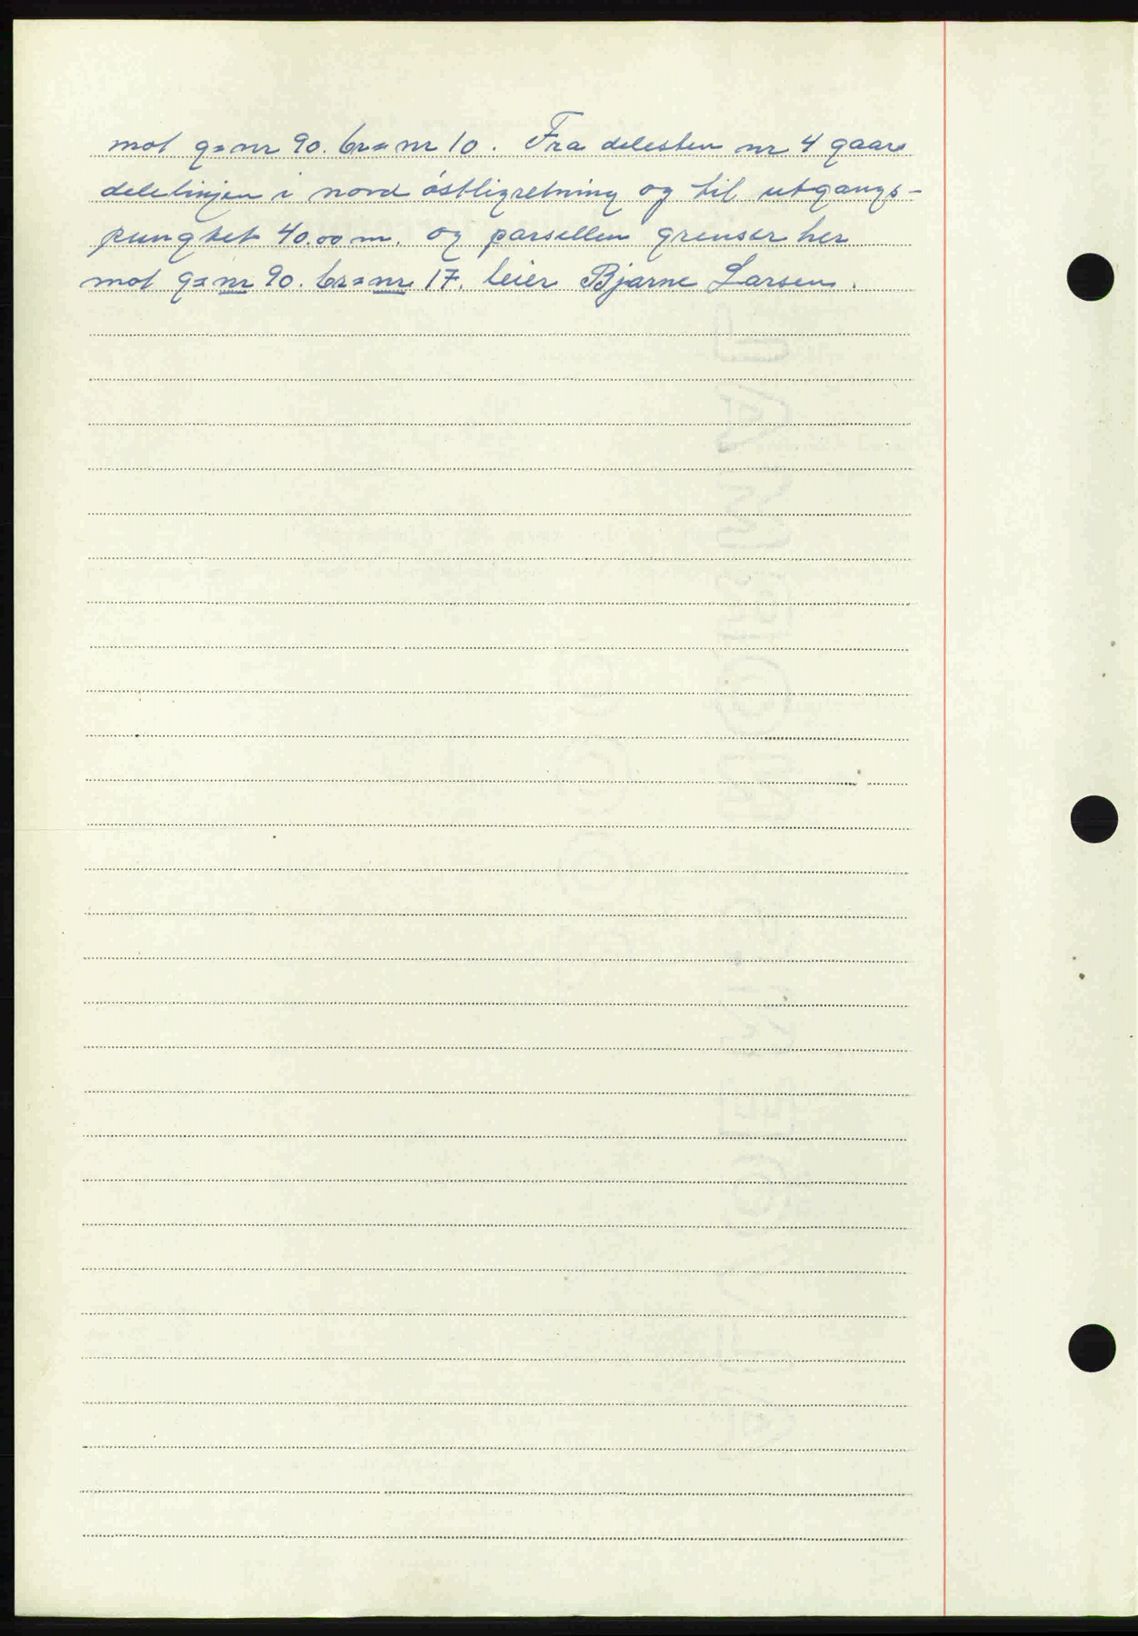 mot g=nr 90. br=nr 10. Fra delesten nr 4 gaar
delelinjen i nord östligretning og til utgangs-
pungktet 40.00 m. og parsellen grenser her
mot g=nr 90. br=nr. 17. eier Bjarne Larsen.